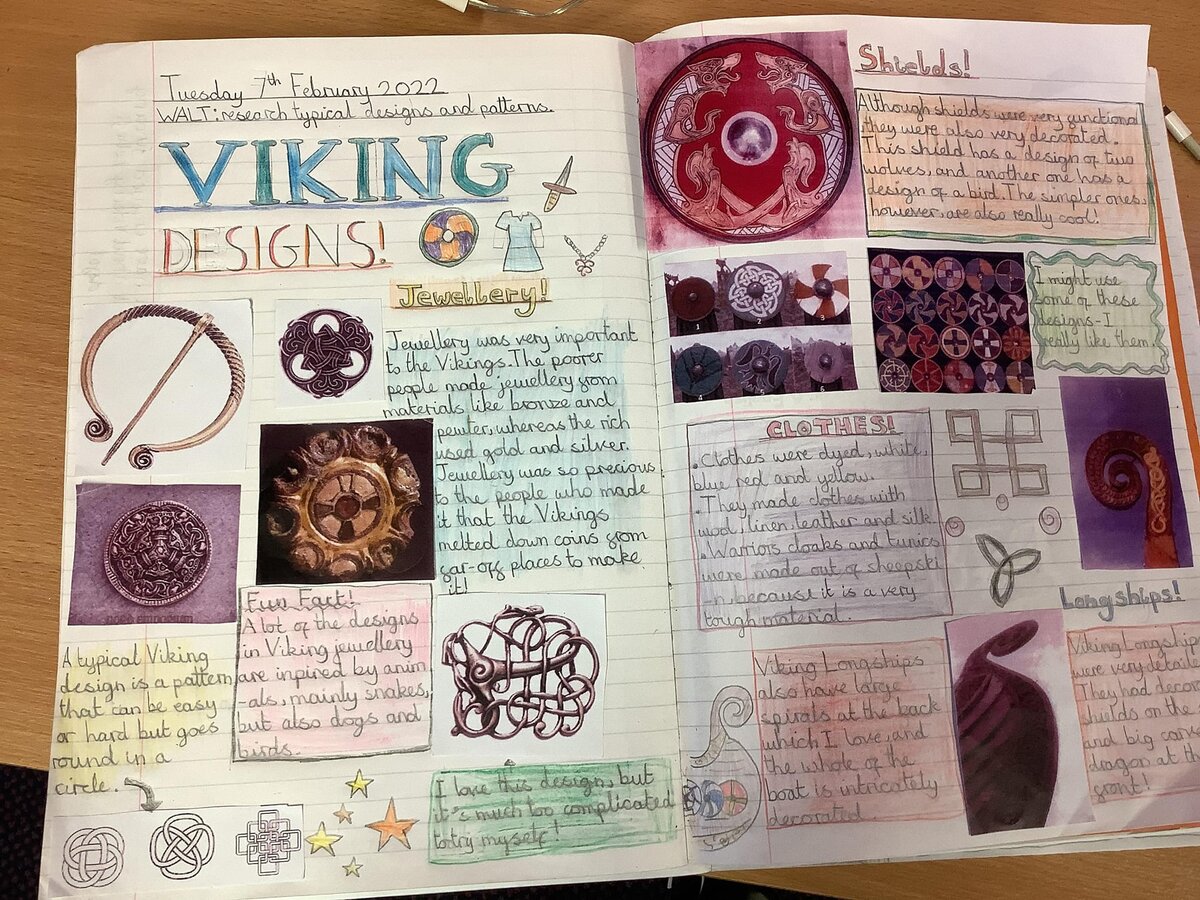 Tuesday 7th February 2022
WALT: research typical designs and patterns.
VIKING
DESIGNS!
Jewellery!
Jewellery was very important
to the Vikings. The poorer
people made jewellery from
materials like bronze and
pewter, whereas the rich
used gold and silver.
Jewellery was so precious
to the people who made
it that the Vikings
melted down coins from
far-off places to make
it!
Fun Fact!
A lot of the designs
in Viking jewellery
are inpired by anim
-als, mainly snakes,
but also dogs and
birds.
A typical Viking
design is a pattern
that can be easy
or hard but goes
round in a
circle.
I love this design, but
it's much too complicated
to try myself!
Shields!
Although shields were very functional
they were also very decorated.
This shield has a design of two
wolves, and another one has a
design of a bird. The simpler ones,
however, are also really cool!
1
2
3
4
5
6
I might use
some of these
designs-I
really like them!
CLOTHES!
•Clothes were dyed, white,
blue red and yellow.
•They made clothes with
wool, linen, leather and silk
•Warriors cloaks and tunics
were made out of sheepski
-n, because it is a very
tough material.
Longships!
Viking Longships
also have large
spirals at the back
which I love, and
the whole of the
boat is intricately
decorated.
Viking Longship
were very detail
They had decor
shields on the
and big carve
dragon at th
front!